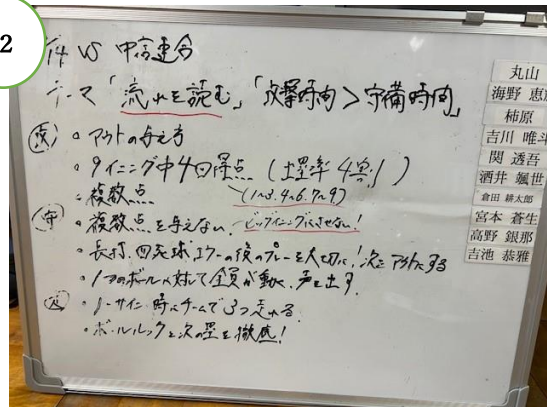 2
/14 VS 中高連合
テーマ「流れを読む」「攻撃時間＞守備時間」
攻 ・アウトの与え方
・9イニング中4回得点（出塁率4割！）
・複数点 (1〜3.4〜6.7〜9)
守 ・複数点を与えない！ビッグイニングにさせない！
・長打、四死球、エラーの後のプレーを大切に！次をアウトにする
・1つのボールに対して全員が動く、声を出す
・ノーサイン時にチームで3つ走れる
・ボールルックと次の塁を徹底！
丸山
海野 恵
柿原
吉川 唯斗
関 透吾
酒井 颯世
倉田 耕太郎
宮本 蒼生
高野 銀那
吉池 恭雅